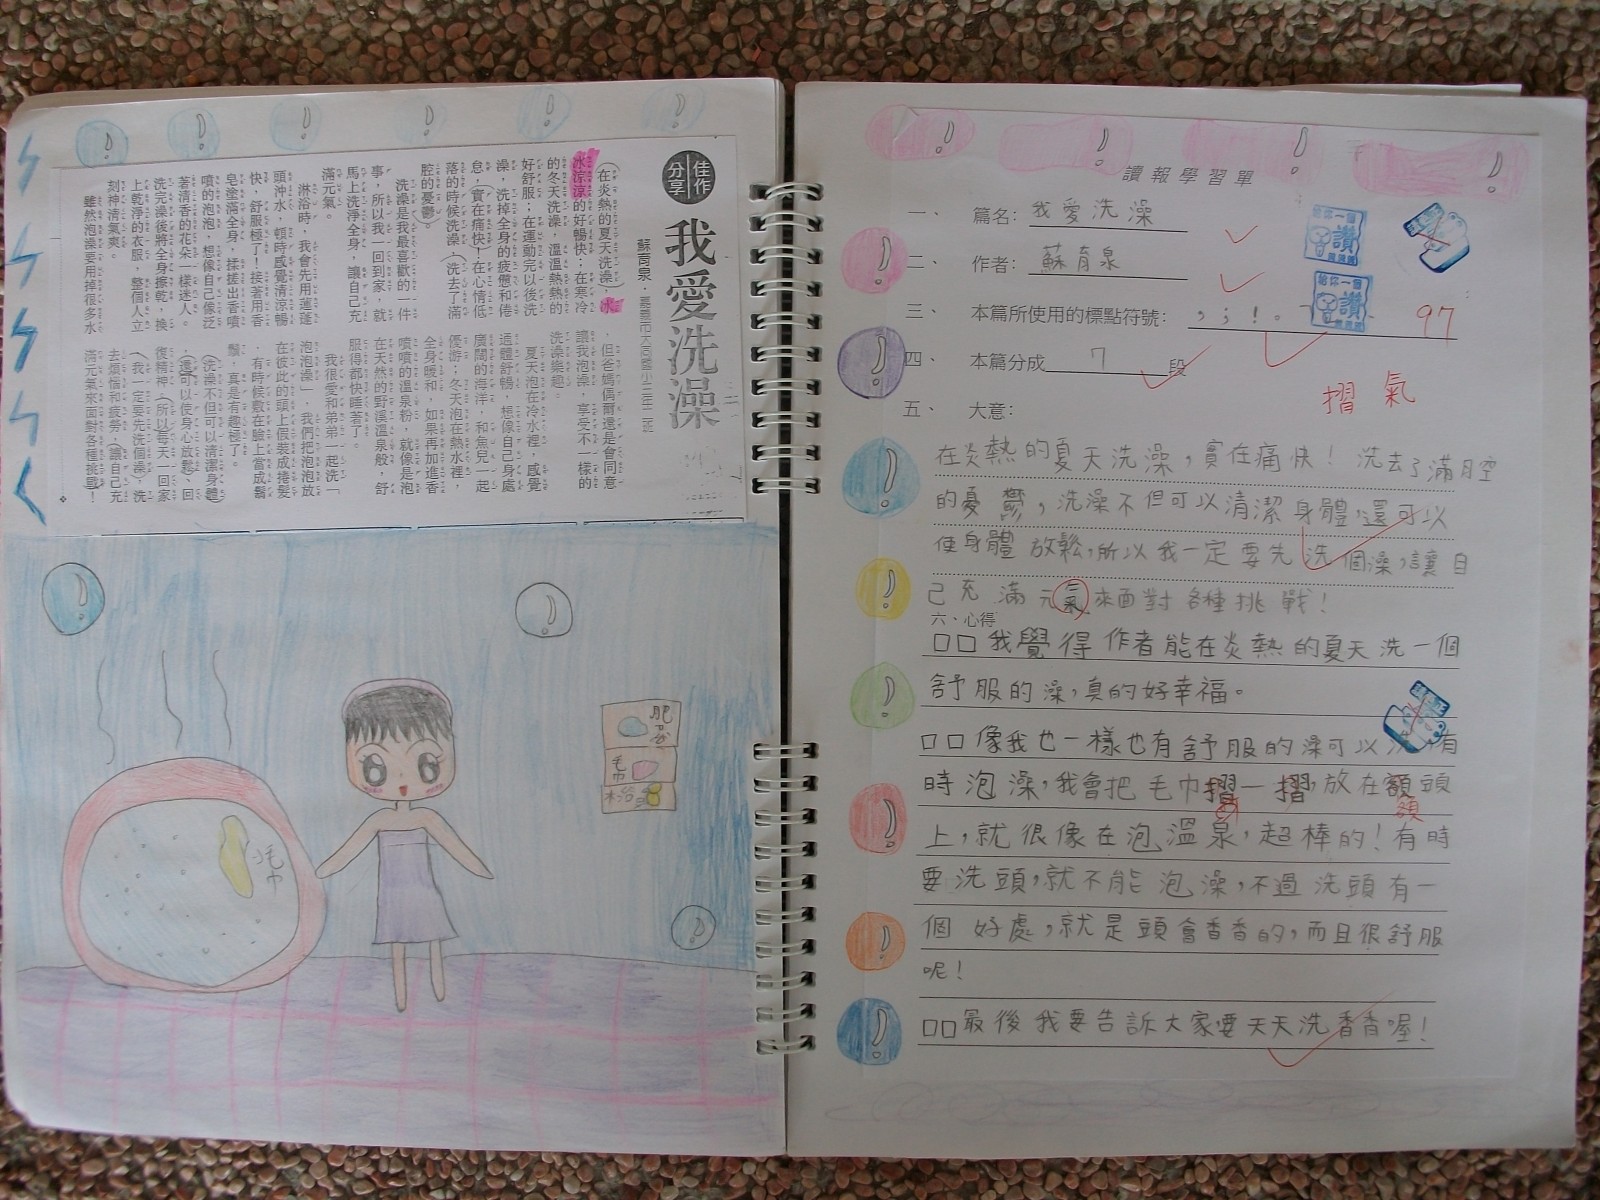 佳作分享
我愛洗澡
蘇育泉．
(在炎熱的夏天洗澡，冰
冰涼涼的好暢快；在寒冷
的冬天洗澡，溫溫熱熱的
好舒服；在運動完以後洗
澡，洗掉全身的疲憊和倦
怠，實在痛快！在心情低
落的時候洗澡，(洗去了滿
腔的憂鬱。)
洗澡是我最喜歡的一件
事，所以我一回到家，就
馬上洗淨全身，讓自己充
滿元氣。
淋浴時，我會先用蓮蓬
頭沖水，頓時感覺清涼暢
快、舒服極了！接著用香
皂塗滿全身，搓揉出香噴
噴的泡泡，想像自己像泛
著清香的花朵一樣迷人。
洗完澡後將全身擦乾，換
上乾淨的衣服，整個人立
刻神清氣爽。
雖然泡澡要用掉很多水
，但爸媽偶爾還是會同意
讓我泡澡，享受不一樣的
洗澡樂趣。
夏天泡在冷水裡，感覺
通體舒暢，想像自己身處
廣闊的海洋，和魚兒一起
優游；冬天泡在熱水裡，
全身暖和，如果再加進香
噴噴的溫泉粉，就像是泡
在天然的野溪溫泉般，舒
服得都快睡著了。
我很愛和弟弟一起洗「
泡泡澡」，我們把泡泡放
在彼此的頭上假裝成捲髮
，有時候敷在臉上當成鬍
鬚，真是有趣極了。
(洗澡不但可以清潔身體)
，(還可以使身心放鬆、回
復精神，(所以)每天一回家
，(我一定要先洗個澡)，洗
去煩惱和疲勞，(讓自己充
滿元氣來面對各種挑戰！
毛巾
肥皂
毛巾
沐浴
讀報學習單
一、 篇名：我愛洗澡
二、 作者：蘇育泉
三、 本篇所使用的標點符號：，；！。
給你一個讚
給你一個讚
97
四、 本篇分成7段
摺 氣
五、 大意：
在炎熱的夏天洗澡，實在痛快！洗去了滿腔
的憂鬱，洗澡不但可以清潔身體，還可以
使身體放鬆，所以我一定要先洗個澡，讓自
己充滿元氣來面對各種挑戰！
六、心得
□□我覺得作者能在炎熱的夏天洗一個
舒服的澡，真的好幸福。
□□像我也一樣也有舒服的澡可以洗，有
時泡澡，我會把毛巾摺一摺，放在額頭
額
上，就很像在泡溫泉，超棒的！有時
要洗頭，就不能泡澡，不過洗頭有一
個好處，就是頭會香香的，而且很舒服
呢！
□□最後我要告訴大家要天天洗香香喔！